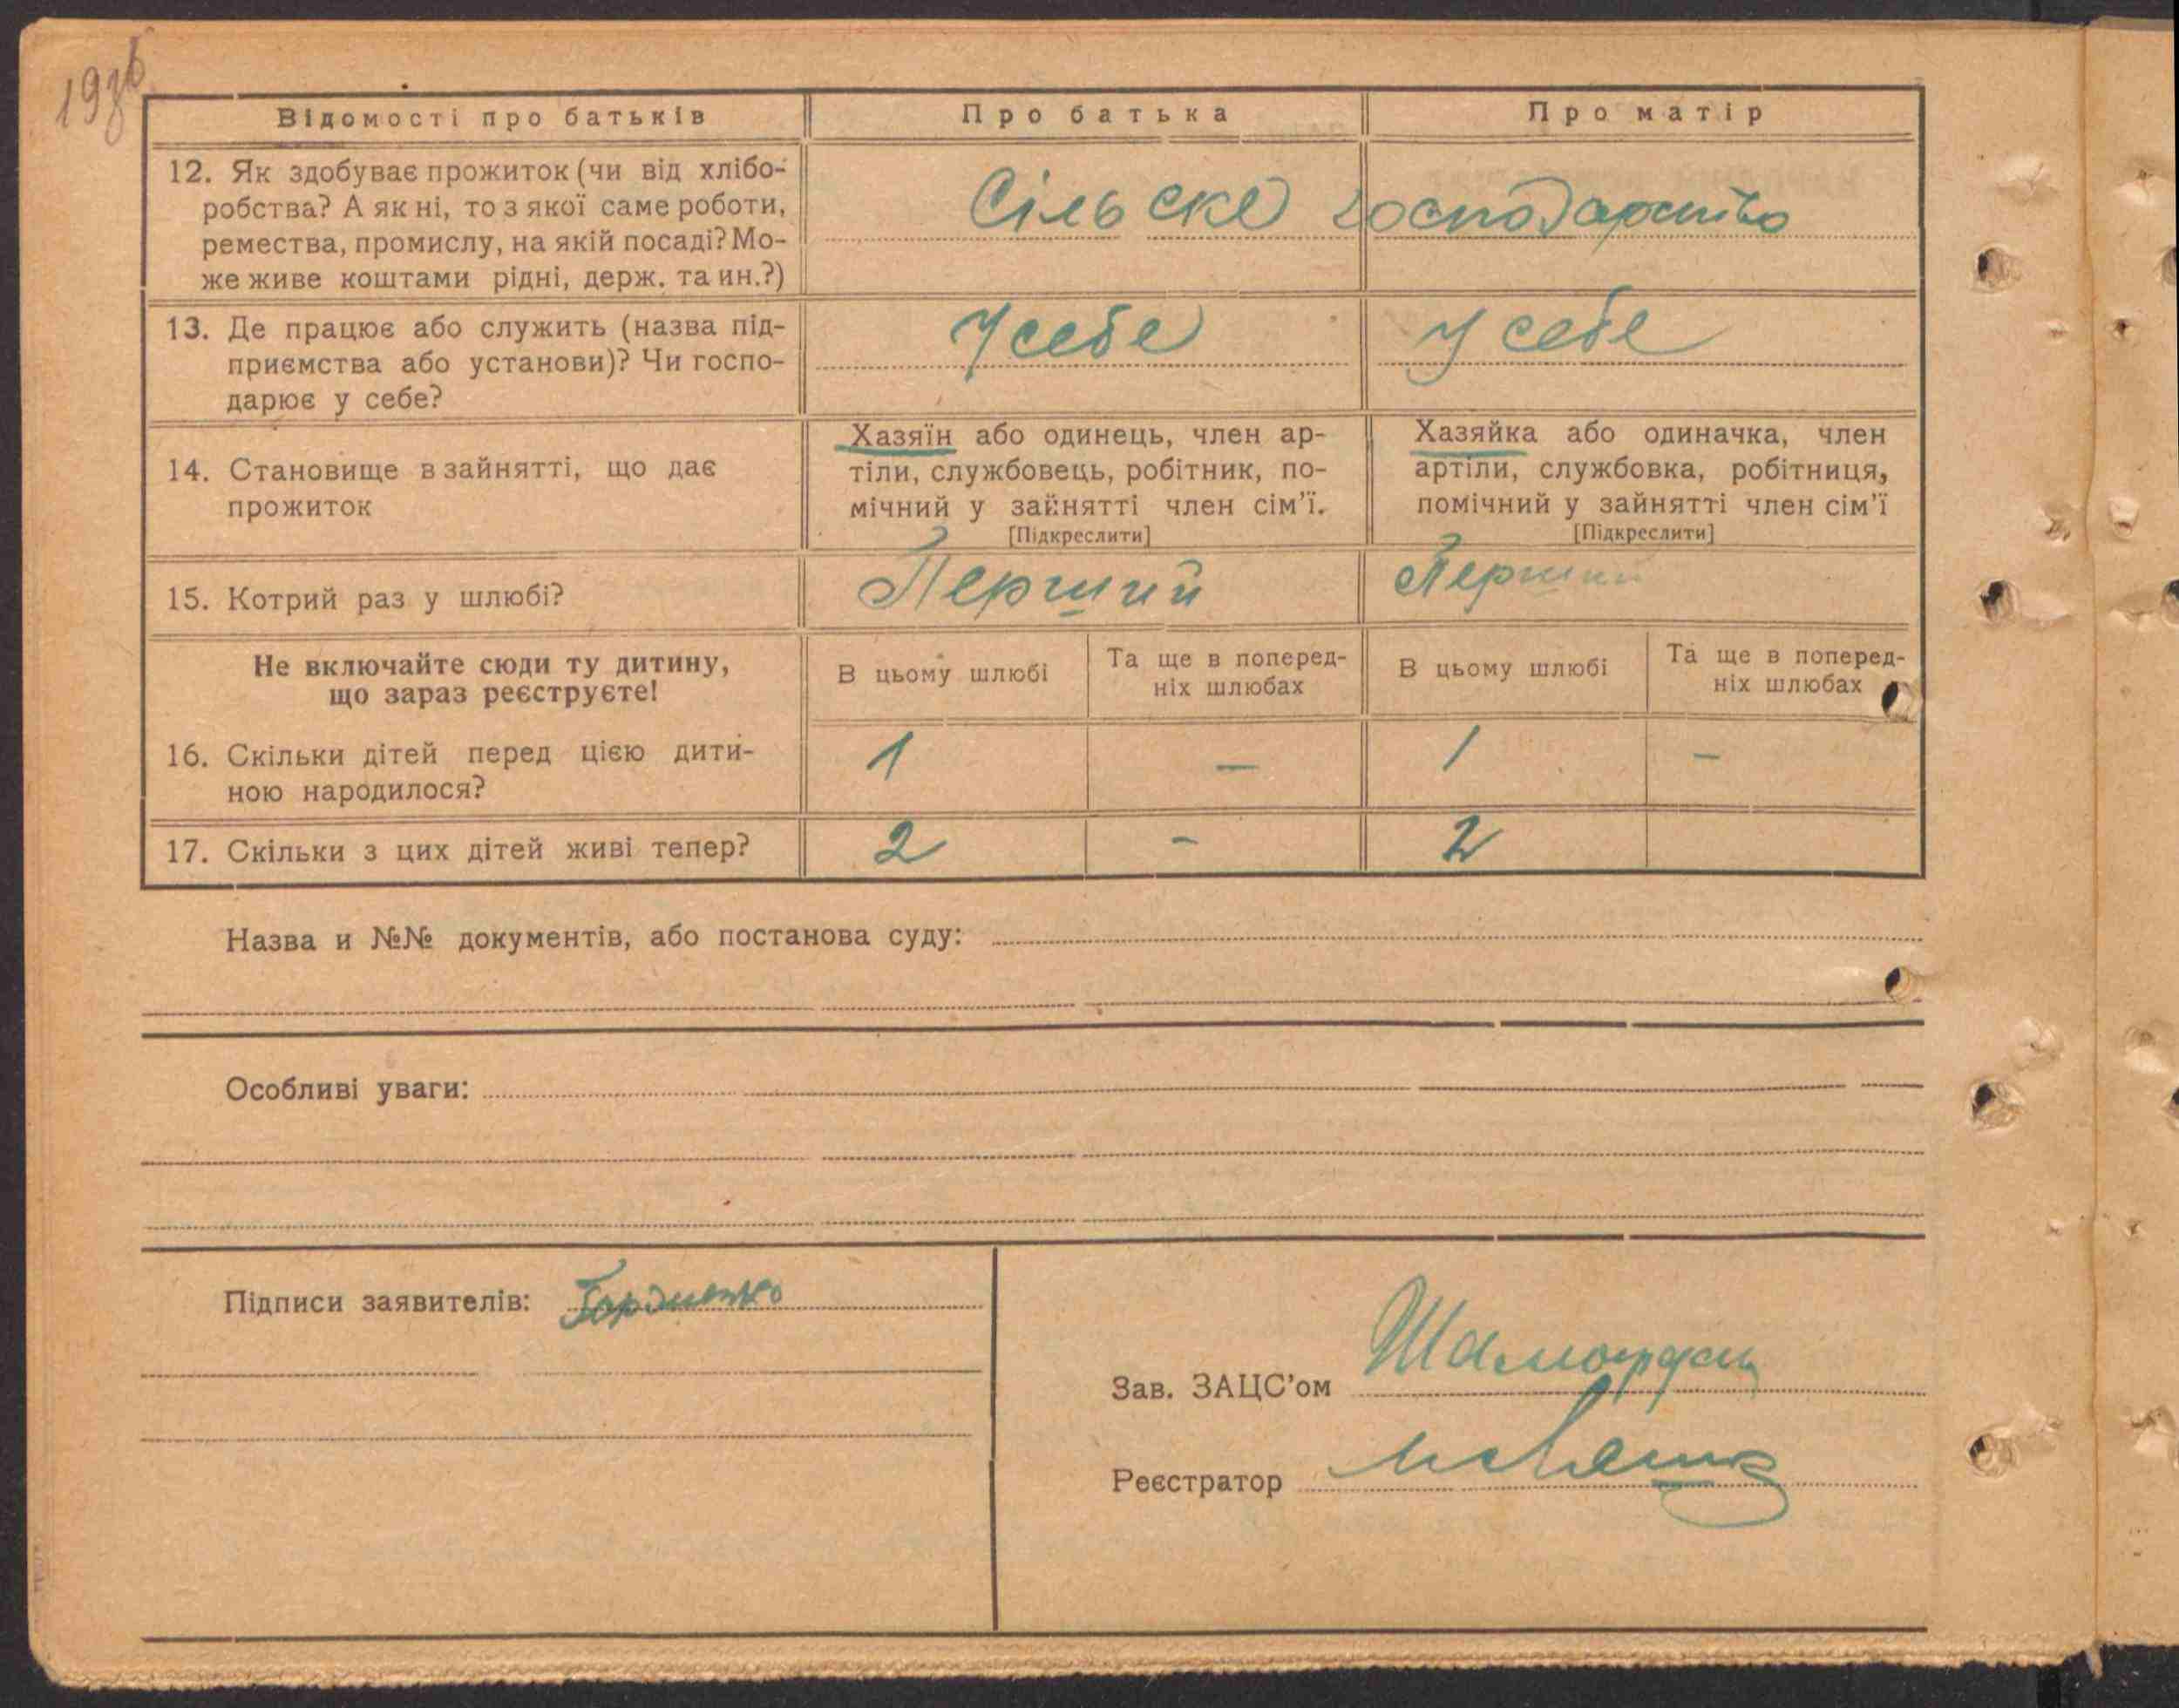 Відомості про батьків
Про батька
Про матір
12. Як здобуває прожиток (чи від хлібо-
робства? А як ні, то з якої саме роботи,
ремества, промислу, на якій посаді? Мо-
же живе коштами рідні, держ. та ин.?)
Сільске господарство
13. Де працює або служить (назва під-
приємства або установи)? Чи госпо-
дарює у себе?
У себе
У себе
14. Становище в зайнятті, що дає
прожиток
Хазяїн або одинець, член ар-
тіли, службовець, робітник, по-
мічний у зайнятті член сім'ї.
[Підкреслити]
Хазяйка або одиначка, член
артіли, службовка, робітниця,
помічний у зайнятті член сім'ї
[Підкреслити]
15. Котрий раз у шлюбі?
Перший
Перший
Не включайте сюди ту дитину,
що зараз реєструєте!
В цьому шлюбі
Та ще в поперед-
ніх шлюбах
В цьому шлюбі
Та ще в поперед-
ніх шлюбах
16. Скільки дітей перед цією дити-
ною народилося?
1
–
1
–
17. Скільки з цих дітей живі тепер?
2
–
2
Назва и №№ документів, або постанова суду:
Особливі уваги:
Підписи заявителів:
Зав. ЗАЦС'ом
Реєстратор